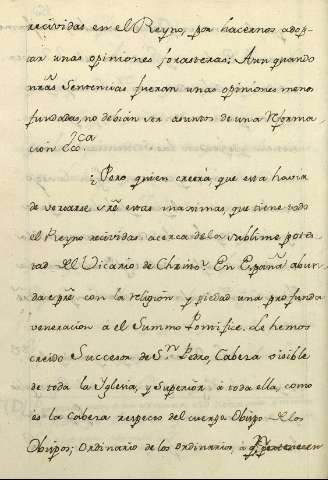 recividas en el Reyno, por hacernos adop-
tar unas opiniones forasteras; Aun quando
nrãs Sentencias fueran unas opiniones menos
fundadas, no debian ser asuntos de una Reforma
cion &c.ª
¿Pero quien creeria que esta havia
de versarse sr̃e estas maximas, que tiene todo
el Reyno recividas acerca de la sublime potes
tad del Vicario de Christo? En España abun
da spr̃e con la religion y piedad una profunda
veneracion a el Summo Pontifice. Le hemos
creido Successor de S.n Pedro, Cabeza visible
de toda la Yglesia, y Superior á toda ella, como
es la Cabeza respecto del cuerpo: Obispo de los
Obispos; Ordinario de los ordinarios, á